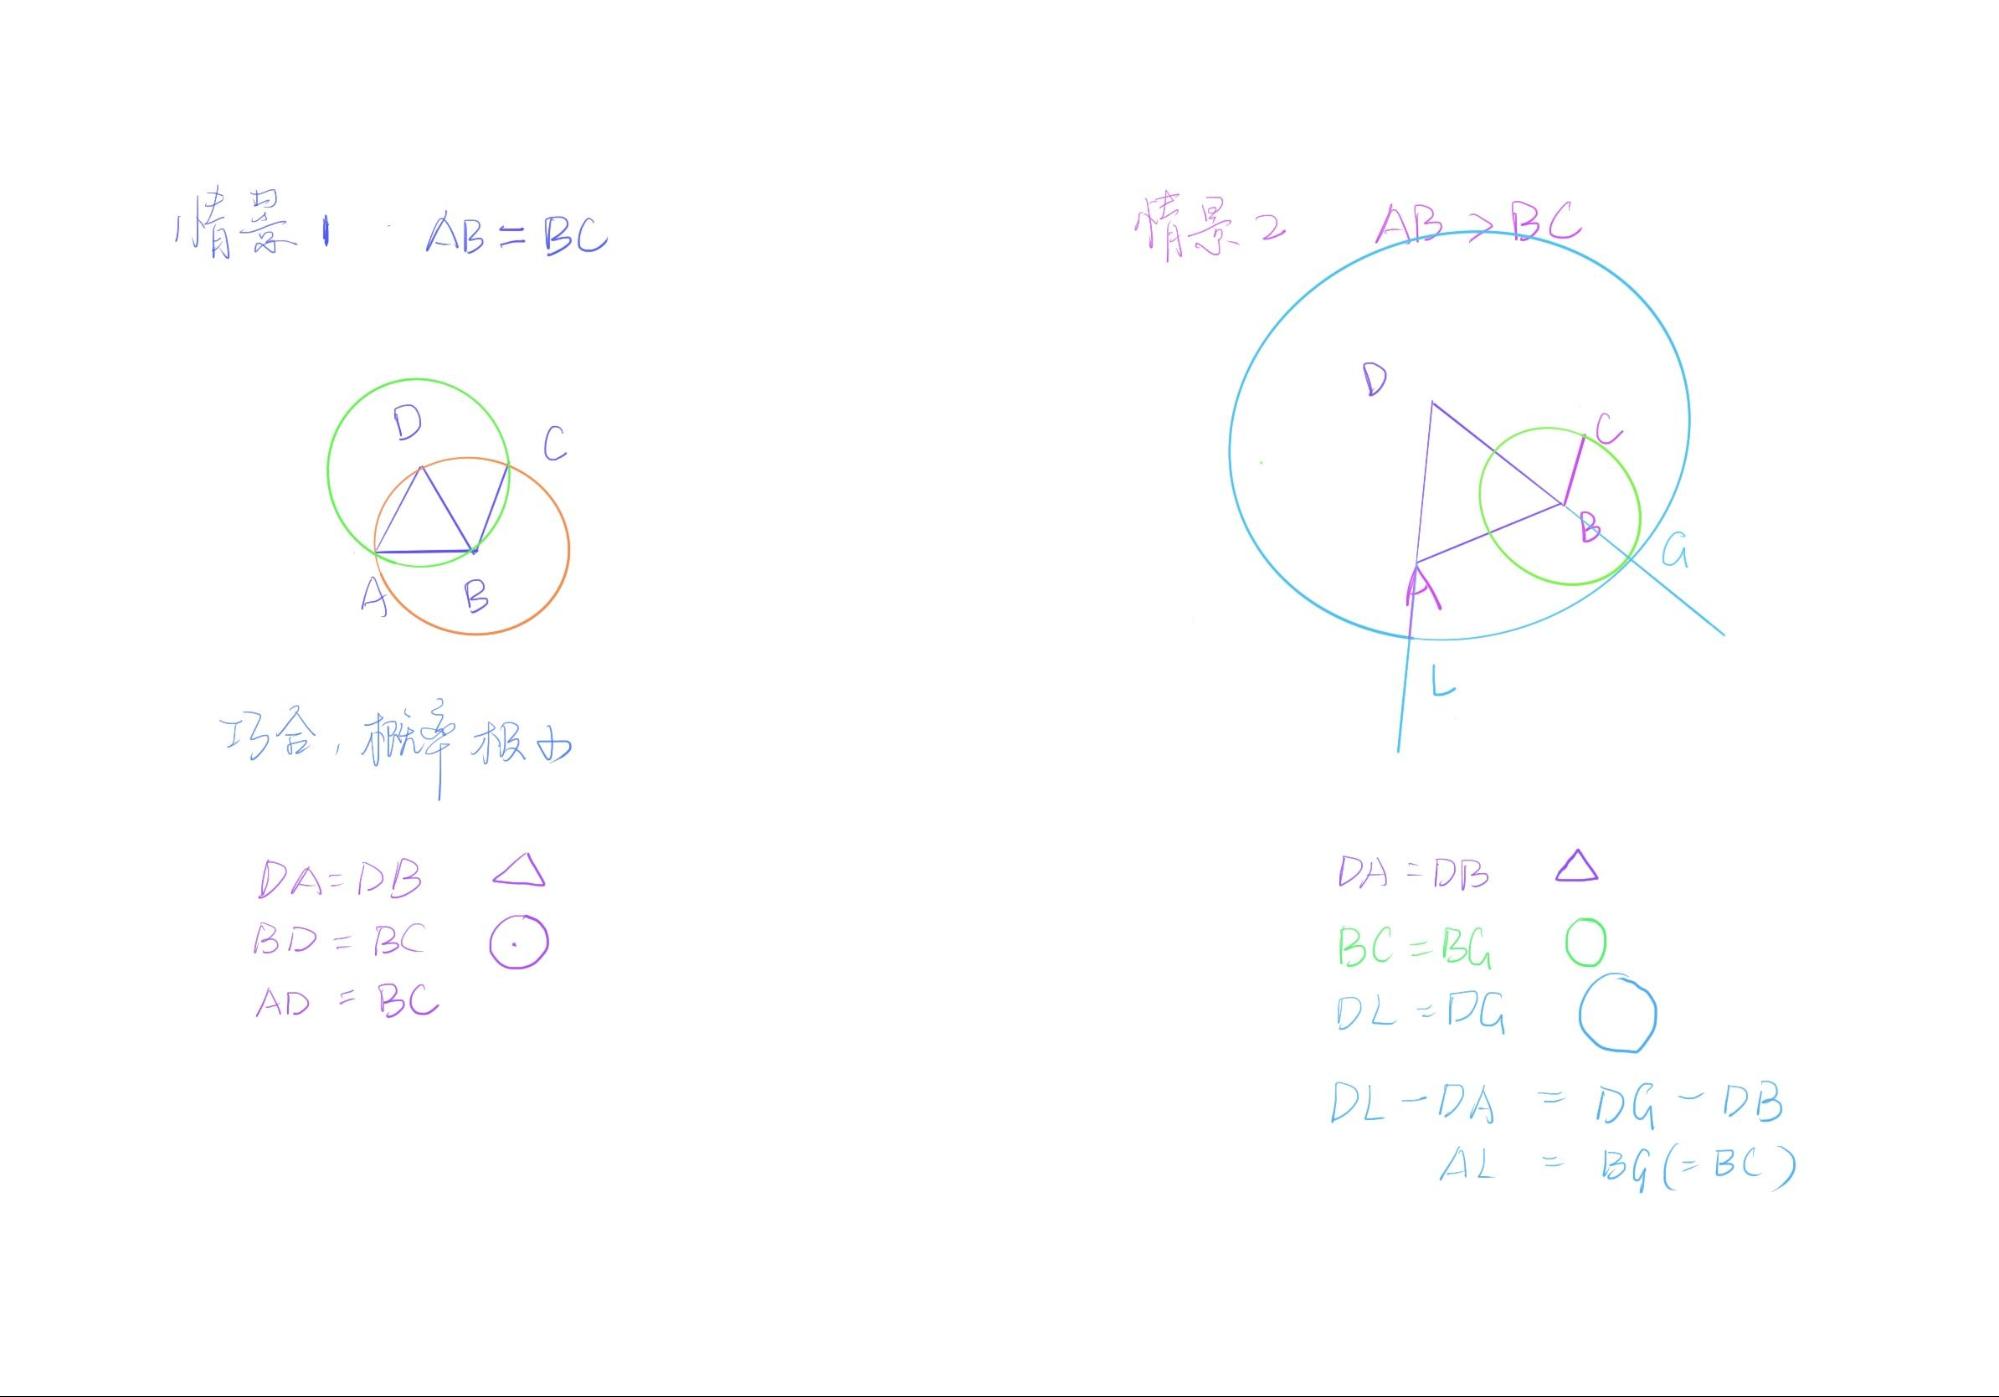 情景1 AB=BC
D
C
A
B
巧合,概率极小
DA=DB
BD=BC
AD=BC
情景2 AB>BC
D
C
B
G
A
L
DA=DB
BC=BG
DL=DG
DL-DA=DG-DB
AL=BG(=BC)